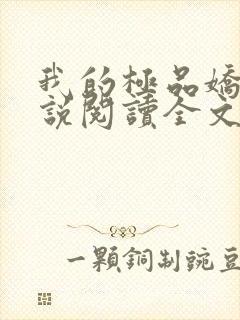 我的極品嬌
說閱讀全文
一顆銅制豌豆